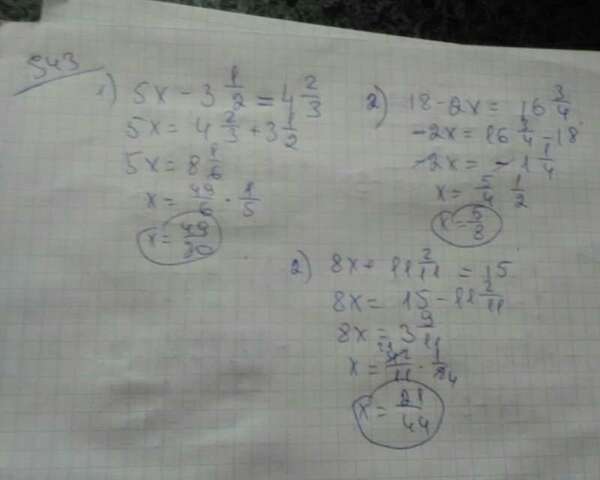 543
1) 5x - 3 1/2 = 4 2/3
5x = 4 2/3 + 3 1/2
5x = 8 1/6
x = 49/6 · 1/5
x = 49/30
2) 18 - 2x = 16 3/4
-2x = 16 3/4 - 18
-2x = -1 1/4
x = 5/4 · 1/2
x = 5/8
2) 8x + 11 2/11 = 15
8x = 15 - 11 2/11
8x = 3 9/11
x = 42/11 · 1/8 21 4
x = 21/44